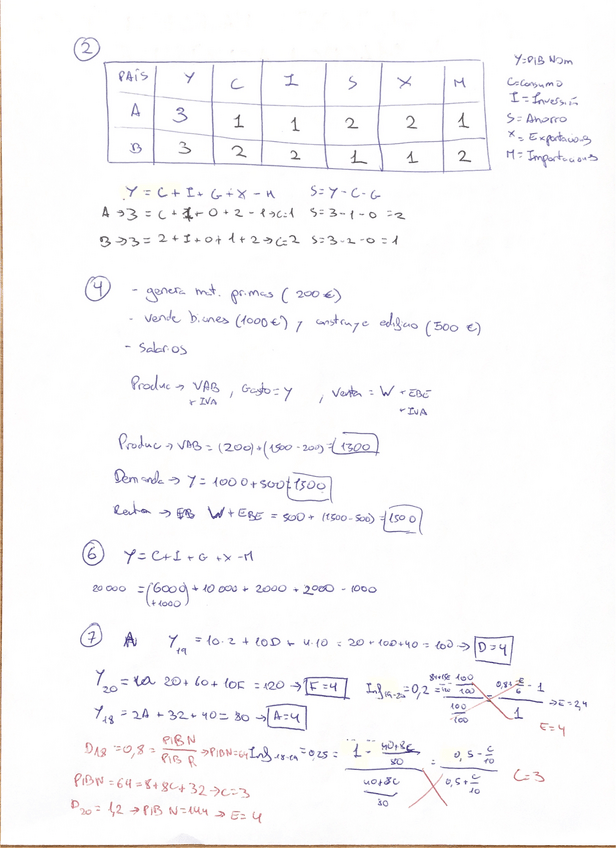 2
PAÍS Y C I S X M
A 3 1 1 2 2 1
B 3 2 2 1 1 2
Y=PIB Nom
C=Consumo
I = Inversión
S= Ahorro
X= Exportaciones
M= Importaciones
Y = C + I + G + X - M S = Y - C - G
A → 3 = C + I + 0 + 2 - 1 → C=1 S = 3 - 1 - 0 = 2
B → 3 = 2 + I + 0 + 1 + 2 → C=2 S = 3 - 2 - 0 = 1
4
- genera mat. primas (200€)
- vende bienes (1000€) y construye edificio (500€)
- Salarios
Produc → VAB , Gasto = Y , = W + EBE
+ IVA + IVA
Produc → VAB = (200) + (1500 - 200) = 1300
Demanda → Y = 1000 + 500 = 1500
→ W + EBE = 500 + (1500 - 500) = 1500
6 Y = C + I + G + X - M
20000 = (6000) + 10000 + 2000 + 2000 - 1000
(+1000)
7 A Y19 = 10·2 + 10D + 4·10 = 20 + 10D + 40 = 100 → D=4
Y20 = 20 + 60 + 10E = 120 → E=4
Y18 = 2A + 32 + 40 = 80 → A=4
Inf 19-20 = 0,2 = 100 100 100 100 = 0,8+ E 6 - 1 1 → E = 2,4
E=4
D18 = 0,8 = PIBN PIB R → PIBN=64
Inf 18-19 = 0,25 = 1 - 40+8C 80 40+8C 80 = 0,5 - C 10 0,5 + C 10 C=3
PIBN = 64 = 8 + 8C + 32 → C=3
D20 = 1,2 → PIB N = 144 → E=4